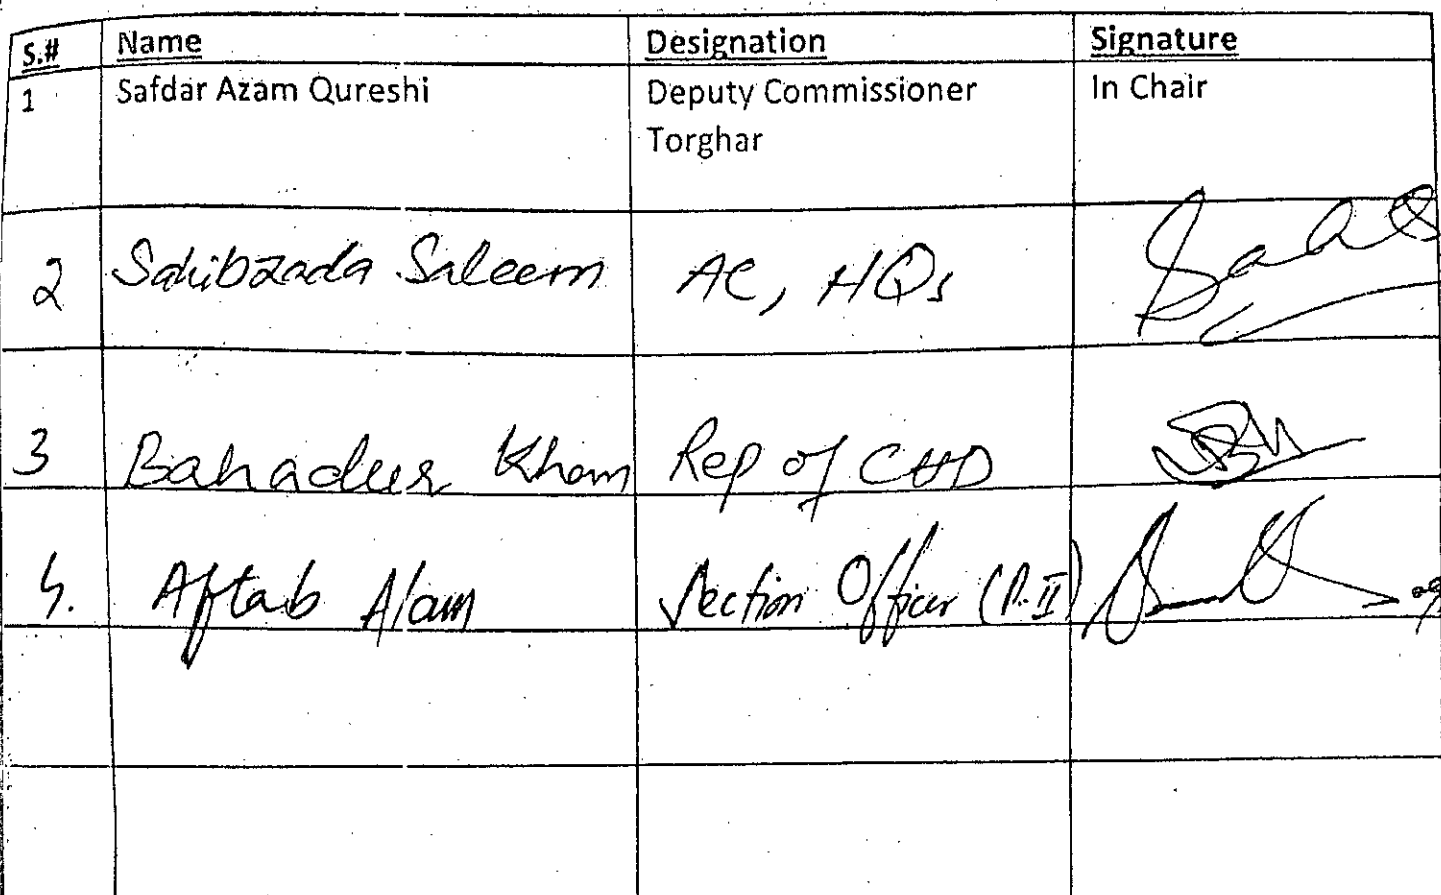 S.# Name Designation Signature
1 Safdar Azam Qureshi Deputy Commissioner In Chair
Torghar
2 Sahibzada Saleem AC, HQs
3 Bahadur Khan Rep of CHD
4. Aftab Alam Section Officer (P.II)